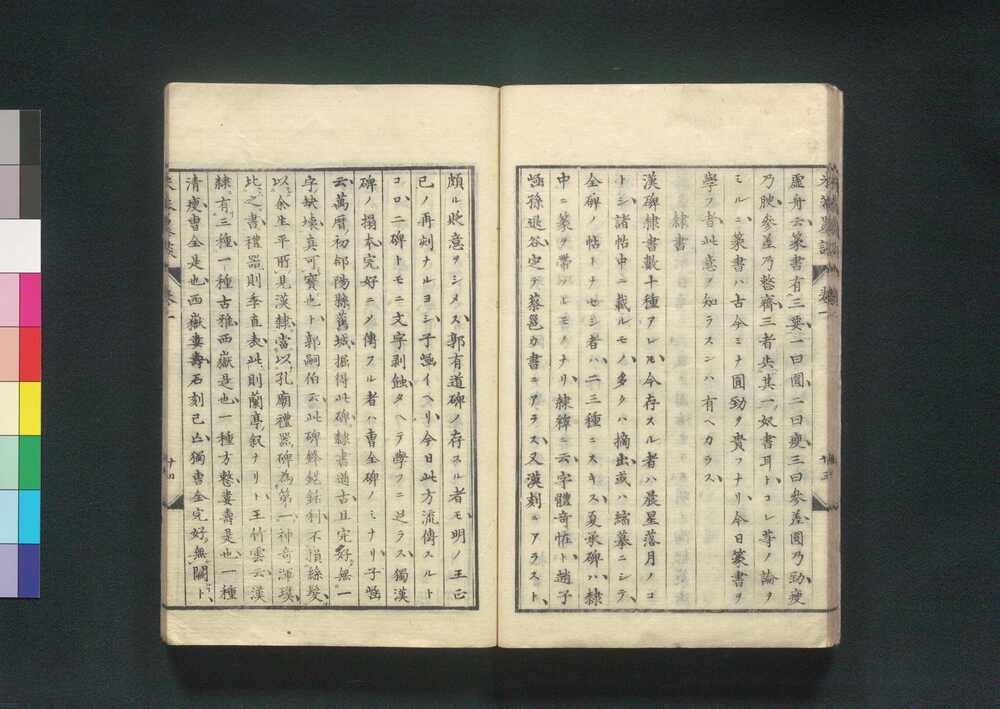 虚舟云篆書有三要一曰圓二曰瘦三曰參差圓乃勁瘦
乃腴參差乃整齊三者失其一奴書耳トコレ等ノ論ヲ
ミルニ篆書ハ古今ミナ圓勁ヲ貴フナリ今日篆書ヲ
學フ者此意ヲ知ラスンハ有ヘカラス
隸書
漢碑隸書數十種アレ𪜈今存スル者ハ晨星落月ノコ
トシ諸帖中ニ載ルモノ多クハ摘出或ハ縮摹ニシテ
全碑ノ帖トナセシ者ハ二三種ニスキス夏承碑ハ隸
中ニ篆ヲ帶フヒモノナリ隸辨ニ云字體奇怪ト趙子
凾孫退谷定テ蔡邕カ書ニアラス又漢刻ニアラスト
頗ル此意ヲシメス郭有道碑ノ存スル者モ明ノ王正
己ノ再刻ナルヨシ子凾イヘリ今日此方流傳スルト
コロ二碑トモニ文字剥蝕タヘテ學フニ足ラス獨漢
碑ノ搨本完好ニメ傳フル者ハ曹全碑ノミナリ子凾
云萬曆初郃陽縣舊城掘得此碑隸書遒古且完好無一
字缺壞真可寶也ト郭嗣伯云此碑鋒鋩銛利不損絲髮
以余生平所見漢隸當以孔廟禮器碑為第一神奇渾璞
此之書禮器則季直表此則蘭亭叙ナリト王竹雲云漢
隸有三種一種古雅西嶽是也一種方整婁壽是也一種
清瘦曹全是也西嶽婁壽石刻已亡獨曹全完好無闕ト
卷一
十四